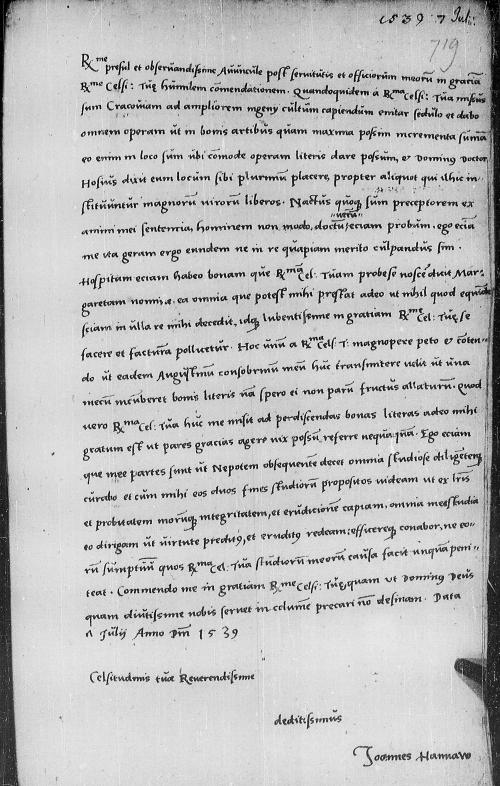 1539 7 Julii
719
Rme presul et observandissime Avuncule post servitutis et officiorum meorum in graciam
Rme Celsi: Tuę humilem comendationem. Quandoquidem a Rma Celsi: Tua missus
sum Cracoviam ad ampliorem ingeny cultum capiendum enitar sedulo et dabo
omnem operam ut in bonis artibus quam maxima possim incrementa sumam
eo enim in loco sum ubi comode operam literis dare possum, et Dominus Doctor
Hosius dixit eum locum sibi plurimum placere, propter aliquot qui illic in-
stituuntur magnorum virorum liberos. Nactus quoque sum preceptorem ex
animi mei sententia, hominem non modo, doctum verum eciam probum, ego eciam
me ita geram ergo eundem ne in re quapiam merito culpandus sim.
Hospitam eciam habeo bonam quam Rma Cel: Tuam probe se nosce dicit Mar-
garetam nomine, ea omnia que potest mihi prestat adeo ut nihil quod equidem
sciam in ulla re mihi decedit, idque lubentissime in gratiam Rme Cel: Tuę se
facere et facturam pollicetur. Hoc unum a Rma Celsi T: magnopere peto et conten-
do ut eadem Augustinum consobrinum meum huc transmittere velit ut una
mecum incumberet bonis literis nam spero ei non parum fructus allaturum. Quod
vero Rma Cel: Tua huc me misit ad perdiscendas bonas literas adeo mihi
gratum est ut pares gracias agere vix possum, referre nequaquam. Ego eciam
que mee partes sunt ut Nepotem obsequentem decet omnia studiose diligenterque
curabo et cum mihi eos duos fines studiorum propositos videam ut ex lris
et probitatem morumque integritatem, et erudicionem capiam, omnia mea studia
eo dirigam ut virtute preditus, et eruditus redeam: efficereque conabor, ne eo-
rum sumptuum quos Rma Cel. Tua studiorum meorum causa facit unquam peni-
teat. Commendo me in gratiam Rme Celsi: Tuę, quam ut Dominus Deus
quam diutissime nobis servet in columem precari non desinam. Data
Julii Anno Dni 1539
Celsitudinis tuæ Reverendissime
deditissimus
Joannes Hannaw